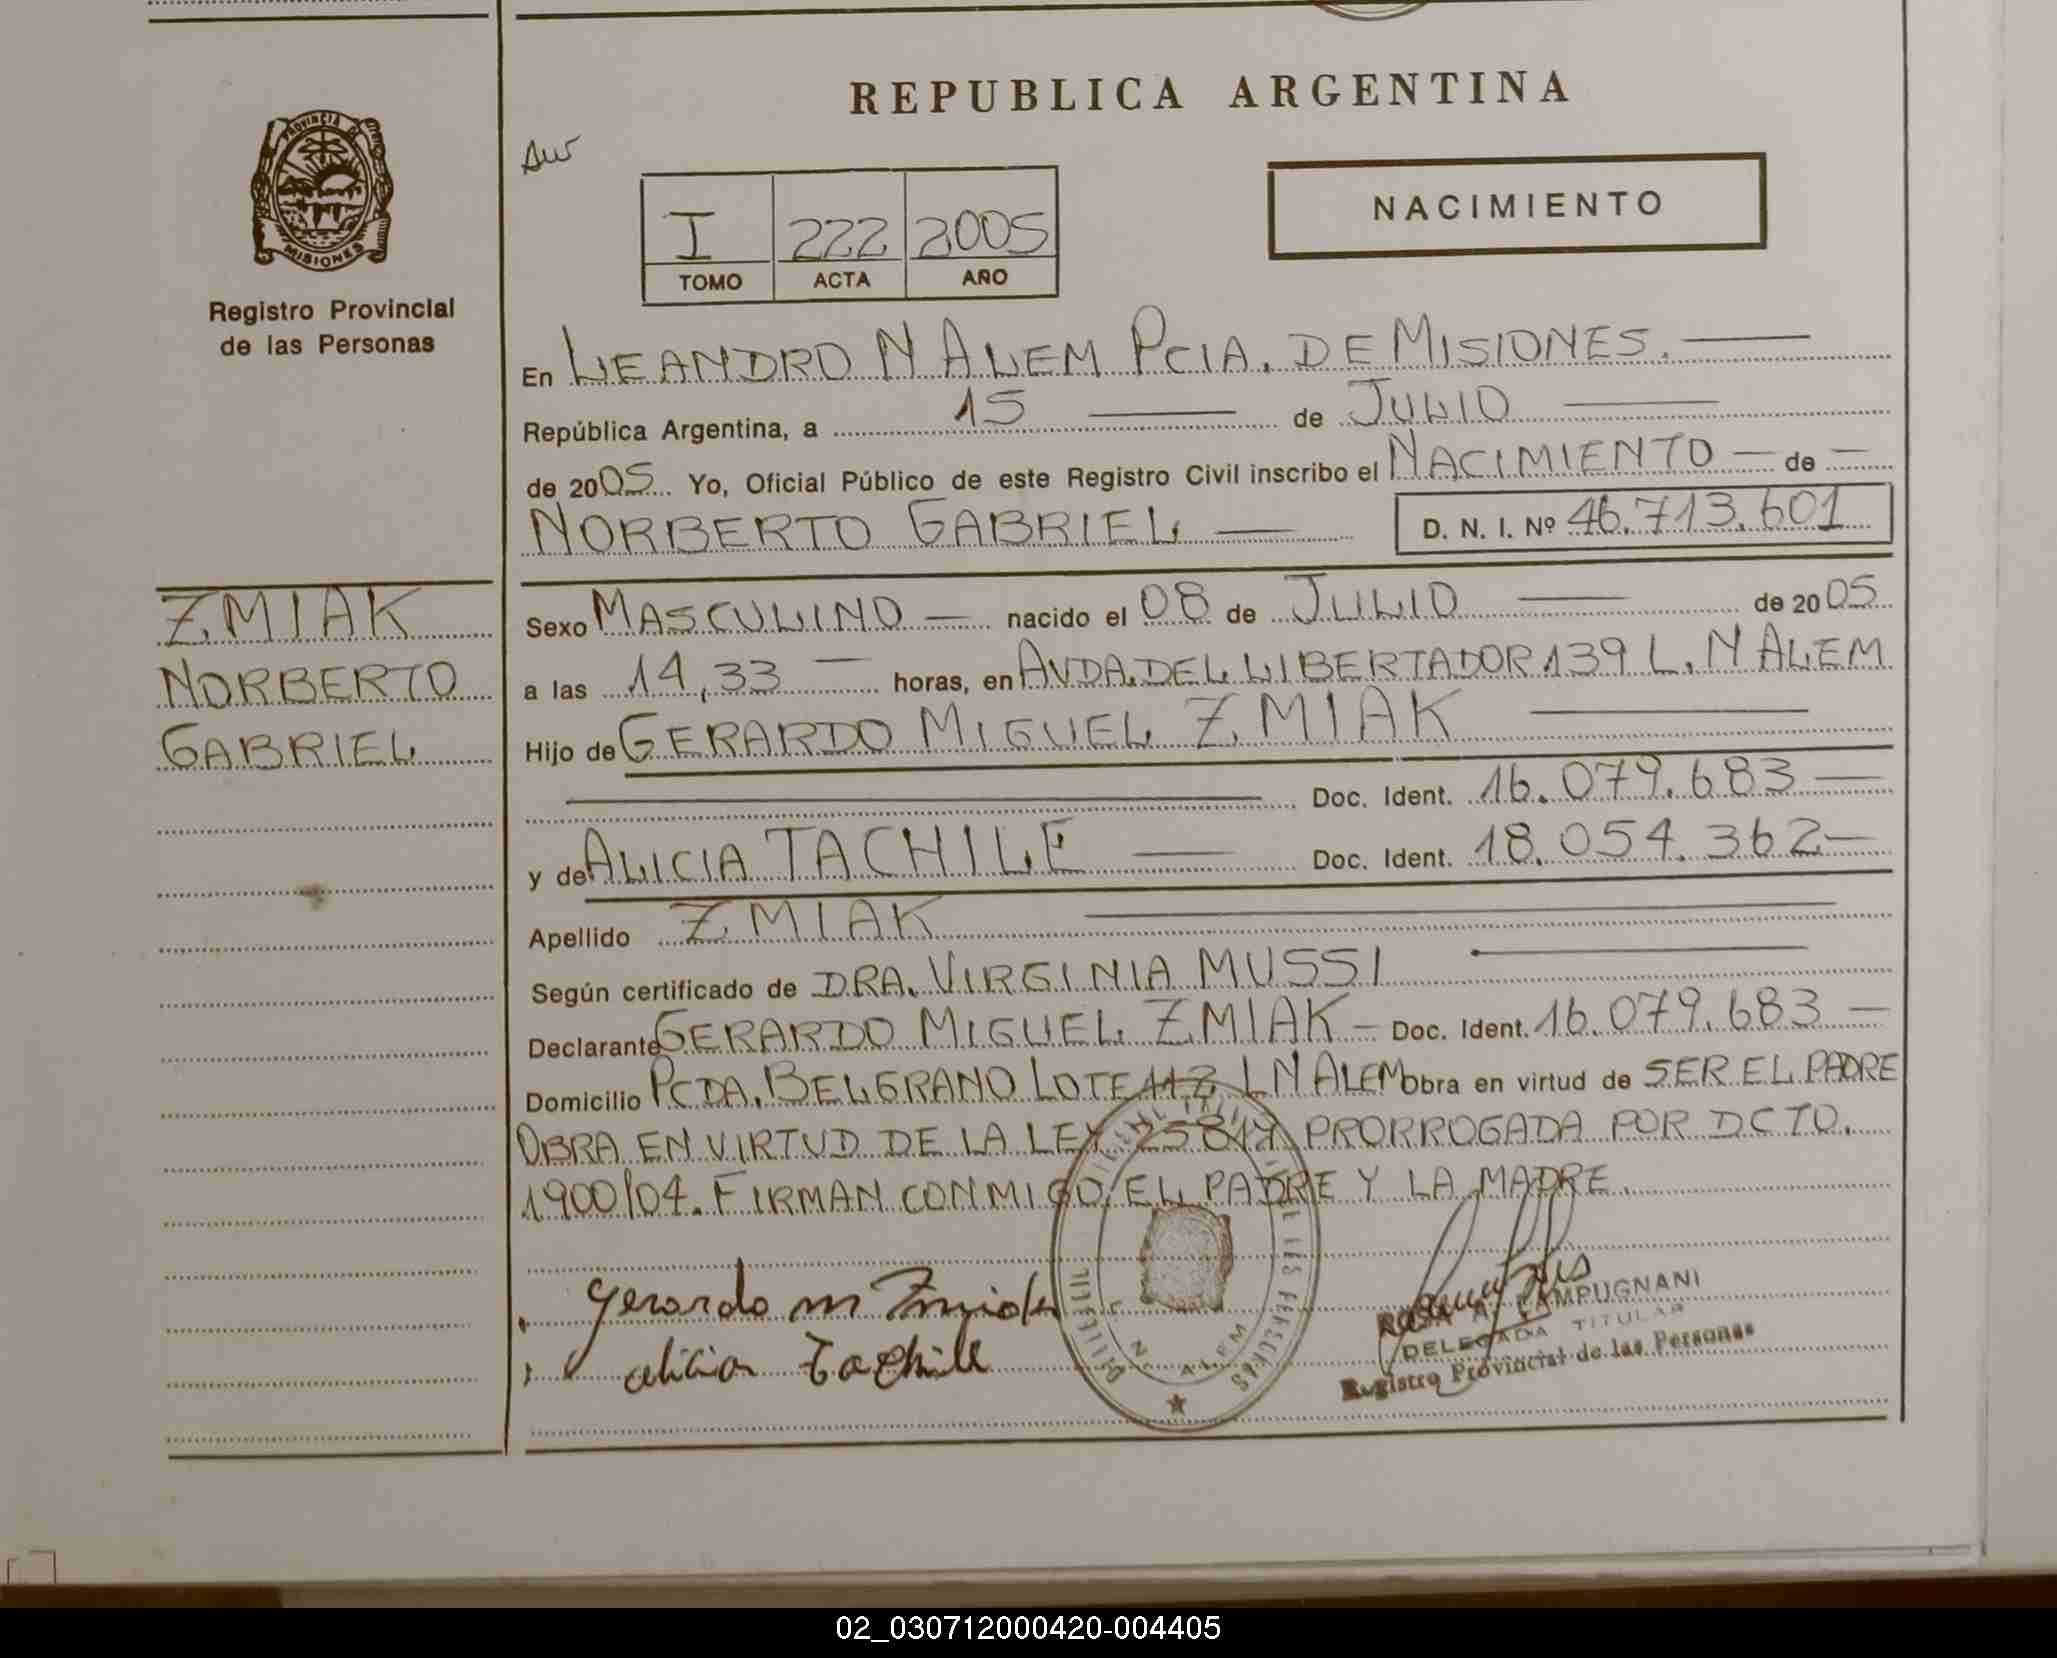 REPUBLICA ARGENTINA
PROVINCIA DE
MISIONES
Registro Provincial
de las Personas
NACIMIENTO
I 222 2005
TOMO ACTA AÑO
En LEANDRO N ALEM PCIA. DE MISIONES.
República Argentina, a 15 de JULIO
de 2005 Yo, Oficial Público de este Registro Civil inscribo el NACIMIENTO de
NORBERTO GABRIEL D. N. I. Nº 46.713.601
ZMIAK
NORBERTO
GABRIEL
Sexo MASCULINO nacido el 08 de JULIO de 2005
a las 14,33 horas, en AVDA. DEL LIBERTADOR 139 L. N ALEM
Hijo de GERARDO MIGUEL ZMIAK
Doc. Ident. 16.079.683
y de ALICIA TACHILE Doc. Ident. 18.054.362
Apellido ZMIAK
Según certificado de DRA. VIRGINIA MUSSI
Declarante GERARDO MIGUEL ZMIAK Doc. Ident. 16.079.683
Domicilio PCDA. BELGRANO LOTE 112 L N ALEM Obra en virtud de SER EL PADRE
OBRA EN VIRTUD DE LA LEY 25819 PRORROGADA POR DCTO.
1900/04. FIRMAN CONMIGO, EL PADRE Y LA MADRE.
Gerardo m Zmiak
alicia Tachile
L N ALEM
ROSA A. LAMPUGNANI
DELEGADA TITULAR
Registro Provincial de las Personas
02_030712000420-004405